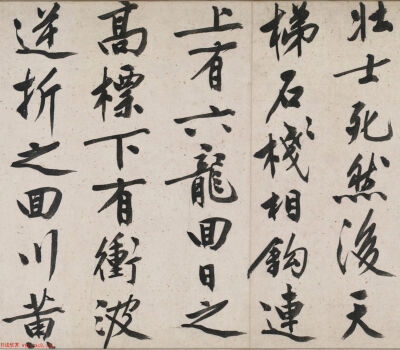 壮士死然後天
梯石棧相鈎連
上有六龍回日之
高標下有衝波
逆折之回川黄